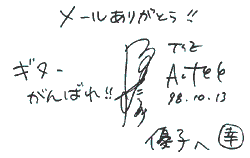 メールありがとう!!
ギター
がんばれ!!
98.10.13
優子へ 幸